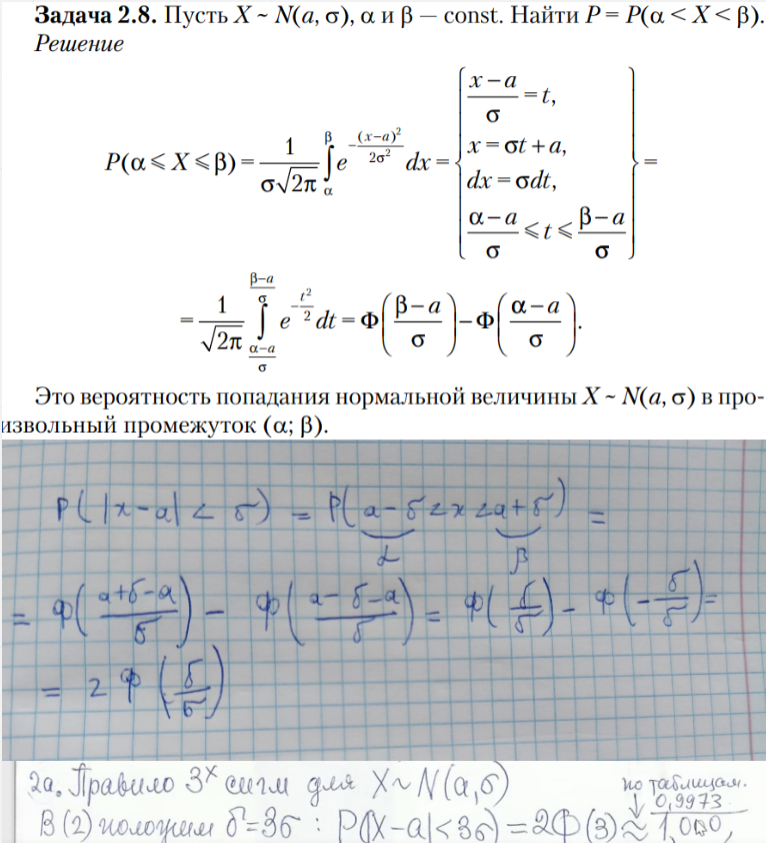 Задача 2.8. Пусть X ~ N(a, σ), α и β — const. Найти P = P(α < X < β).
Решение
P(α ⩽ X ⩽ β) = 1/(σ√2π) ∫_α^β e^(−(x−a)²/(2σ²)) dx = { (x−a)/σ = t,
x = σt + a,
dx = σdt,
(α−a)/σ ⩽ t ⩽ (β−a)/σ } =
= 1/√2π ∫_((α−a)/σ)^((β−a)/σ) e^(−t²/2) dt = Φ((β−a)/σ) − Φ((α−a)/σ).
Это вероятность попадания нормальной величины X ~ N(a, σ) в про-
извольный промежуток (α; β).
P(|x−a| < δ) = P(a−δ < x < a+δ) =
α β
= Φ((a+δ−a)/σ) − Φ((a−δ−a)/σ) = Φ(δ/σ) − Φ(−δ/σ) =
= 2Φ(δ/σ)
2а. Правило 3ˣ сигм для X~N(a,σ) по таблицам.
↓ 0,9973
В (2) положим δ=3σ : P(|X−a|<3σ) = 2Φ(3) ≈ 1,000,